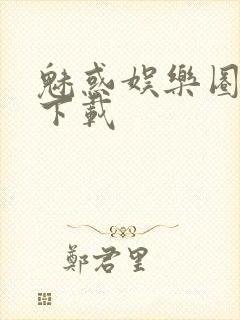 魅惑娛樂圈
下載
鄭君里